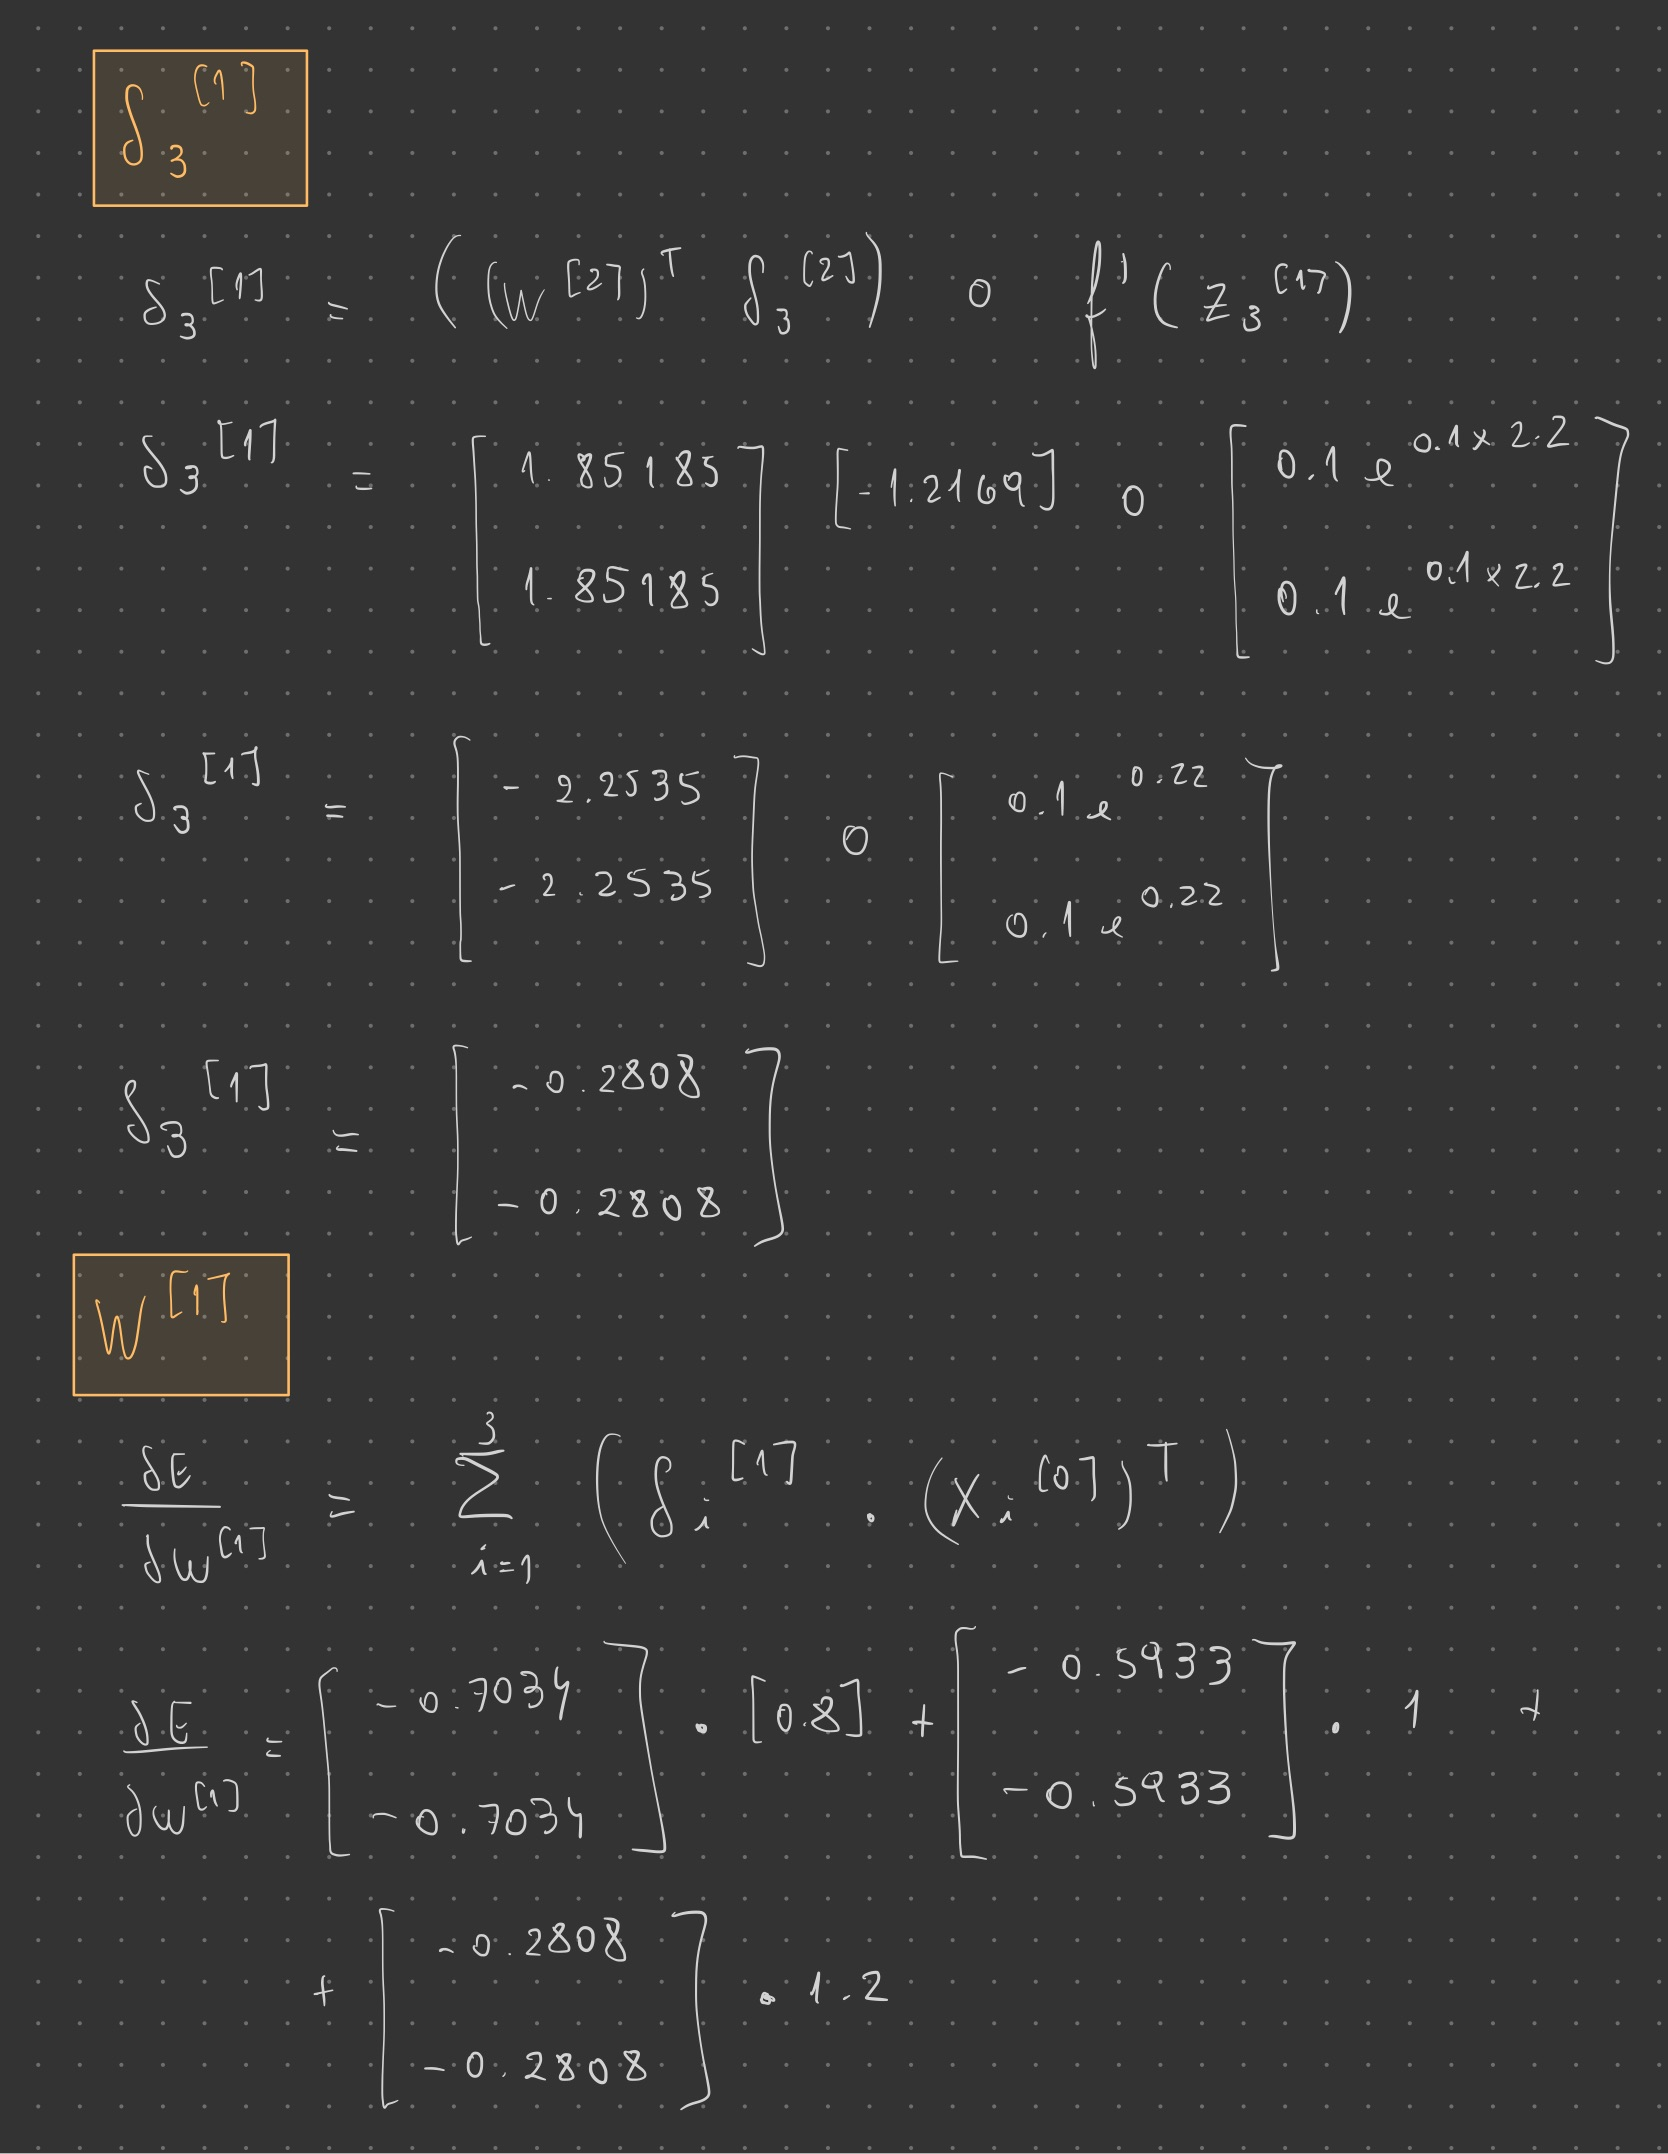 δ₃^[1]
δ₃^[1] = ((W^[2])^T δ₃^[2]) ∘ f'(z₃^[1])
δ₃^[1] = [1.85185; 1.85185] [-1.2169] ∘ [0.1 e^(0.1×2.2); 0.1 e^(0.1×2.2)]
δ₃^[1] = [-2.2535; -2.2535] ∘ [0.1 e^(0.22); 0.1 e^(0.22)]
δ₃^[1] = [-0.2808; -0.2808]
W^[1]
δE/δW^[1] = Σ_(i=1)^3 (δ_i^[1] · (X_i^[0])^T)
δE/δW^[1] = [-0.7034; -0.7034] · [0.8] + [-0.5933; -0.5933] · 1 +
+ [-0.2808; -0.2808] · 1.2